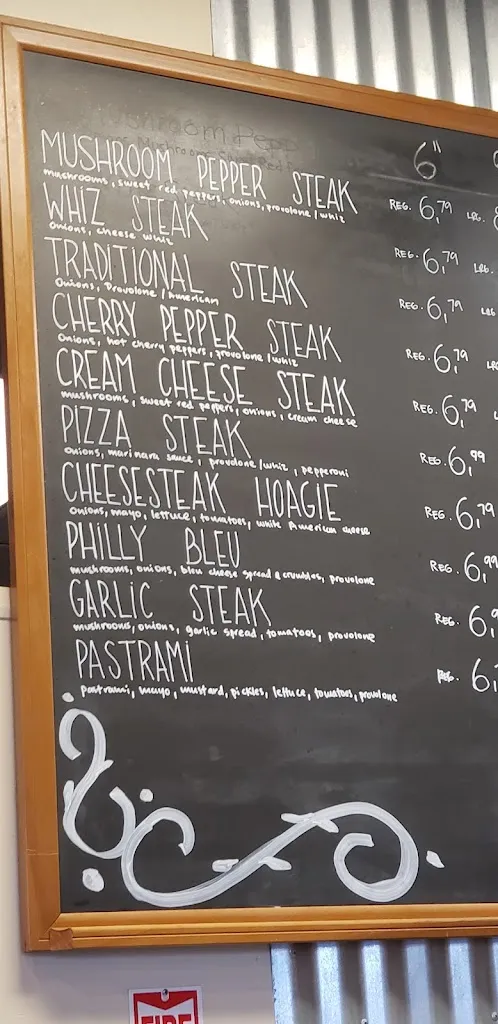 6"
MUSHROOM PEPPER STEAK REG. 6,79 LRG.
mushrooms, sweet red peppers, onions, provolone/whiz
WHIZ STEAK REG. 6,79 LRG.
Onions, cheese whiz
TRADITIONAL STEAK REG. 6,79 LRG
Onions, Provolone/American
CHERRY PEPPER STEAK REG. 6,79
Onions, hot cherry peppers, provolone/whiz
CREAM CHEESE STEAK REG. 6,79
mushrooms, sweet red peppers, onions, cream cheese
PIZZA STEAK REG. 6,99
Onions, marinara sauce, provolone/whiz, pepperoni
CHEESESTEAK HOAGIE REG. 6,79
Onions, mayo, lettuce, tomatoes, white American cheese
PHILLY BLEU REG. 6,99
mushrooms, onions, bleu cheese spread & crumbles, provolone
GARLIC STEAK REG. 6,
mushrooms, onions, garlic spread, tomatoes, provolone
PASTRAMI REG. 6,
pastrami, mayo, mustard, pickles, lettuce, tomatoes, provolone
FIRE